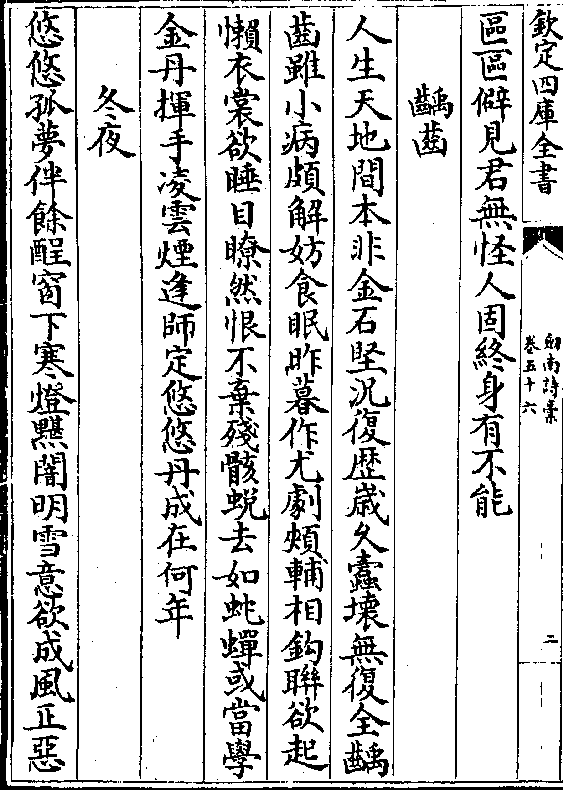 欽定四庫全書
劒南詩稾
卷五十六
二
區區僻見君無怪人固終身有不能
齲齒
人生天地間本非金石堅況復歴歳久蠹壊無復全齲
齒雖小病頗解妨食眠昨暮作尤劇頰輔相鈎聨欲起
懶衣裳欲睡目瞭然恨不棄殘骸蛻去如虵蟬或當學
金丹揮手凌雲煙逢師定悠悠丹成在何年
冬夜
悠悠孤夢伴餘酲窗下寒燈黮闇明雪意欲成風正惡